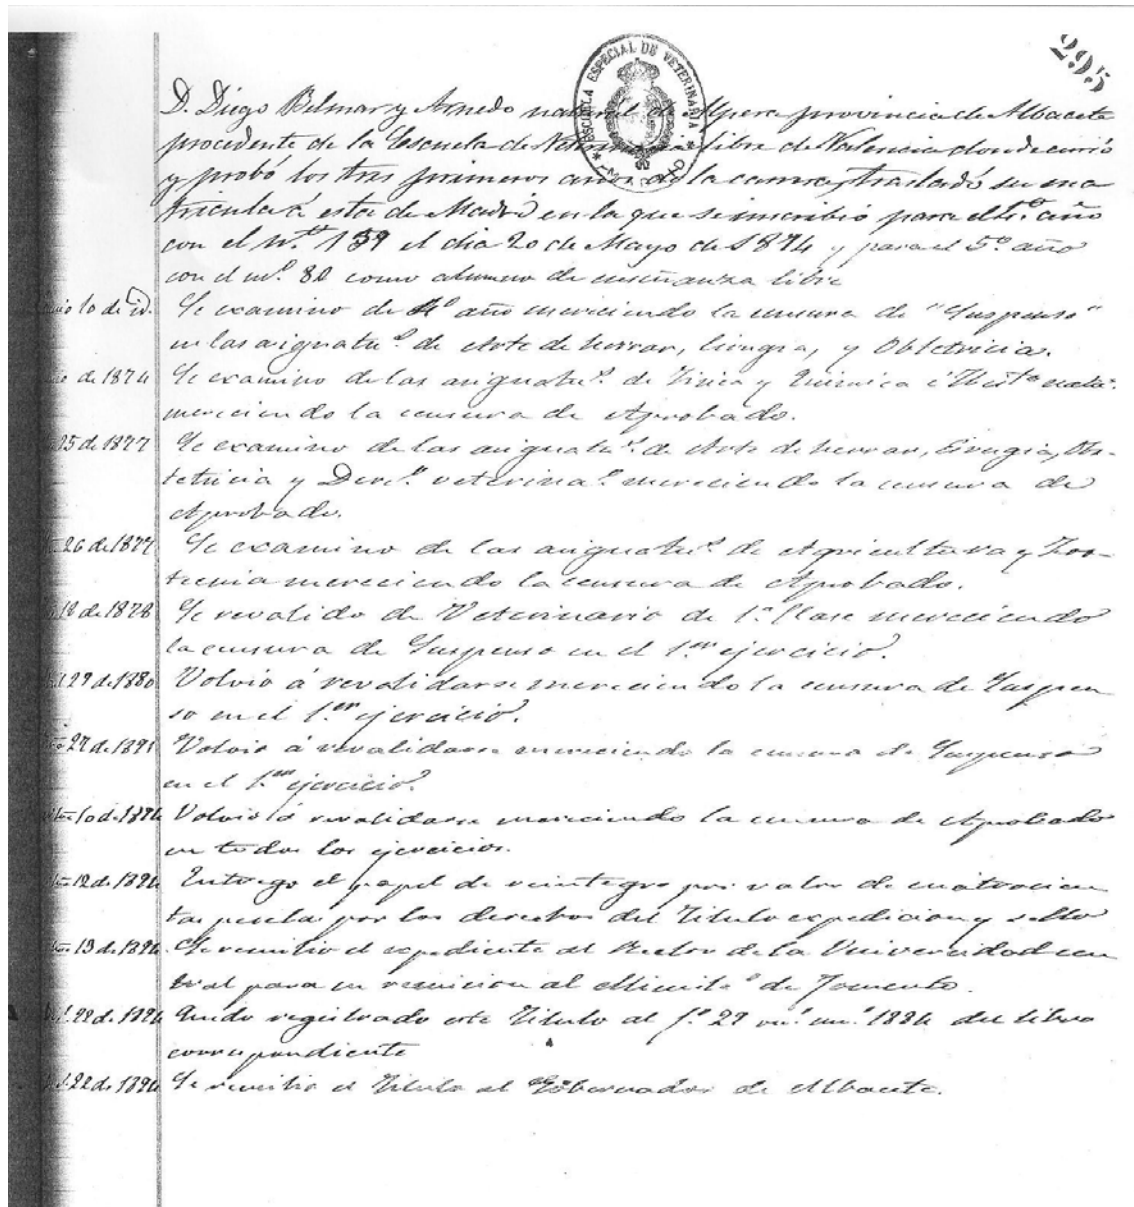 295
ESCUELA ESPECIAL DE VETERINARIA
D. Diego Belmar y Arnedo natural de Alpera provincia de Albacete
procedente de la Escuela de Veterinaria libre de Valencia donde cursó
y probó los tres primeros años de la carrera, trasladó su ma
trícula á esta de Madrid en la que se inscribió para el 4º año
con el nº 139 el dia 20 de Mayo de 1874 y para el 5º año
con el nº 80 como alumno de enseñanza libre
10 de id. Se examino de 4º año mereciendo la censura de "Suspenso"
en las asignatuˢ de Arte de herrar, Cirugia, y Obstetricia.
de 1874 Se examino de las asignatuˢ de Fisica y Quimica é Histª natuˡ
mereciendo la censura de Aprobado.
25 de 1877 Se examino de las asignatuˢ de Arte de herrar, Cirugia, Obs-
tetricia y Derº veterinaº mereciendo la censura de
Aprobado.
26 de 1877 Se examino de las asignatuˢ de Agricultura y Zoo-
tecnia mereciendo la censura de Aprobado.
18 de 1878 Se revalido de Veterinario de 1ª Clase mereciendo
la censura de Suspenso en el 1er ejercicio.
29 de 1880 Volvio á revalidarse mereciendo la censura de Suspen
so en el 1er ejercicio.
27 de 1891 Volvio á revalidarse mereciendo la censura de Suspenso
en el 1er ejercicio.
10 de 1894 Volvio á revalidarse mereciendo la censura de Aprobado
en todos los ejercicios.
12 de 1894 Entrego el papel de reintegro por valor de cuatrocien
tas pesetas por los derechos del Titulo expedicion y sello
13 de 1894 Se remitio el expediente al Rector de la Universidad cen
tral para su remision al Ministº de Fomento.
22 de 1894 Quedo registrado este Titulo al fº 27 nº 1884 del libro
correspondiente
22 de 1894 Se remitio el Titulo al Gobernador de Albacete.